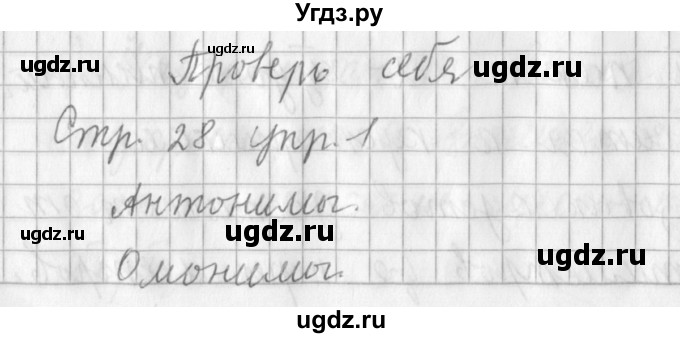 Угдз.ру
ugdz.ru
ugdz.ru
ugdz.ru
Проверь себя
Стр. 28 упр. 1
Антонимы.
ugdz.ru
ugdz.ru
ugdz.ru
Омонимы.
ugdz.ru